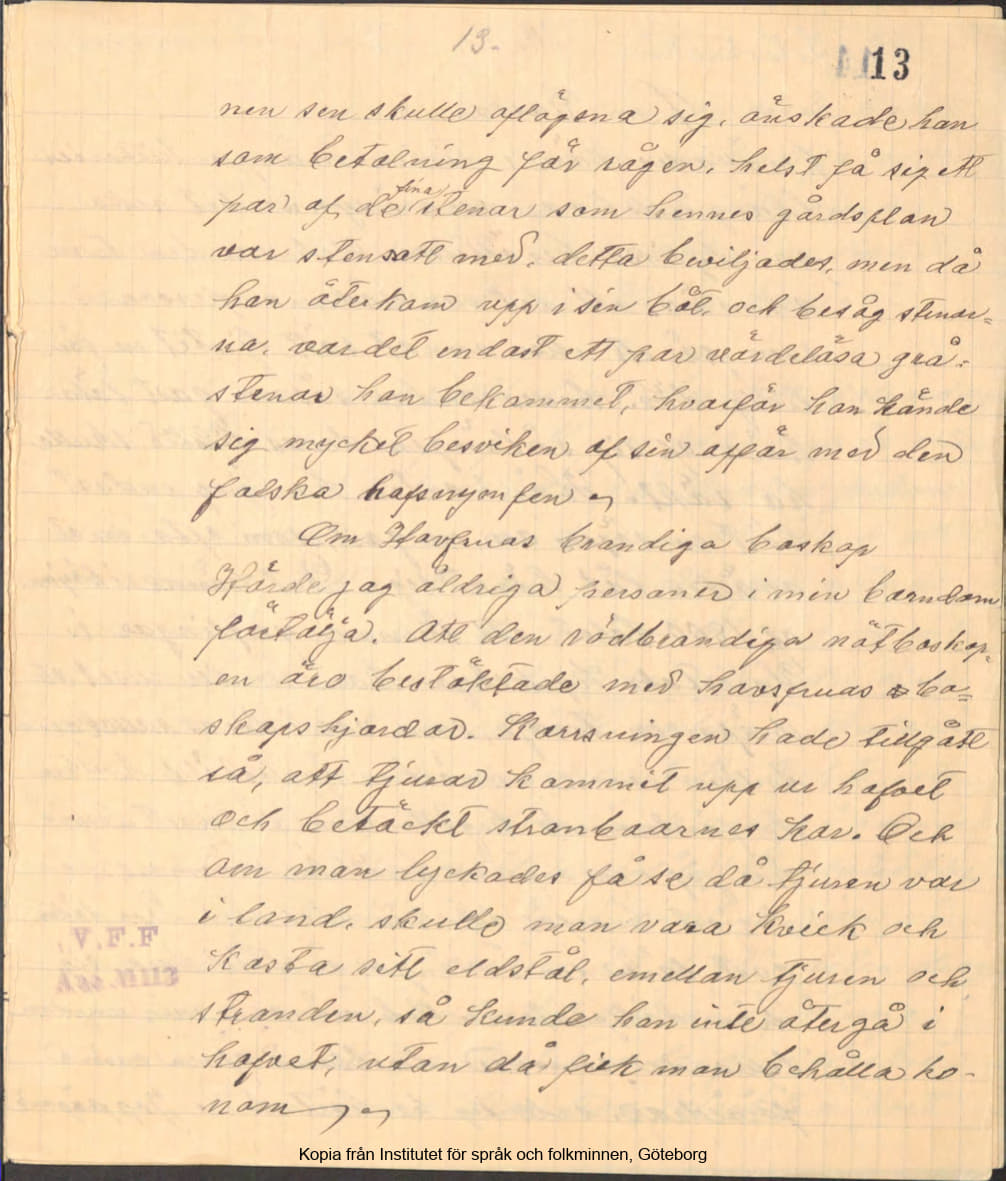 13.
13
nen sen skulle aflägsna sig, önskade han
som betalning för rågen, helst få sig ett
par af de fina stenar som hennes gårdsplan
var stensatt med, detta beviljades, men då
han återkom upp i sin båt, och besåg stenar=
na, var det endast ett par värdelösa grå=
stenar han bekommet, hvarför han kände
sig mycket besviken af sin affär med den
falska hafsnymfen
Om Havfruas brandiga boskap
Hörde jag åldriga personer i min barndom
förtälja. Att den rödbrandiga nötboskap=
en äro bestöktade med havsfruas bo=
skapshjordar. Korrsningen hade tillgått
så, att tjurar kommit upp ur hafvet
Och betäckt strandboarnes kor. Och
om man lyckades få se då tjuren var
i land, skulle man vara kvick och
kasta sitt eldstål, emellan tjuren och
stranden, så kunde han inte återgå i
hafvet, utan då fick man behålla ho-
nom
V.F.F
Kopia från Institutet för språk och folkminnen, Göteborg